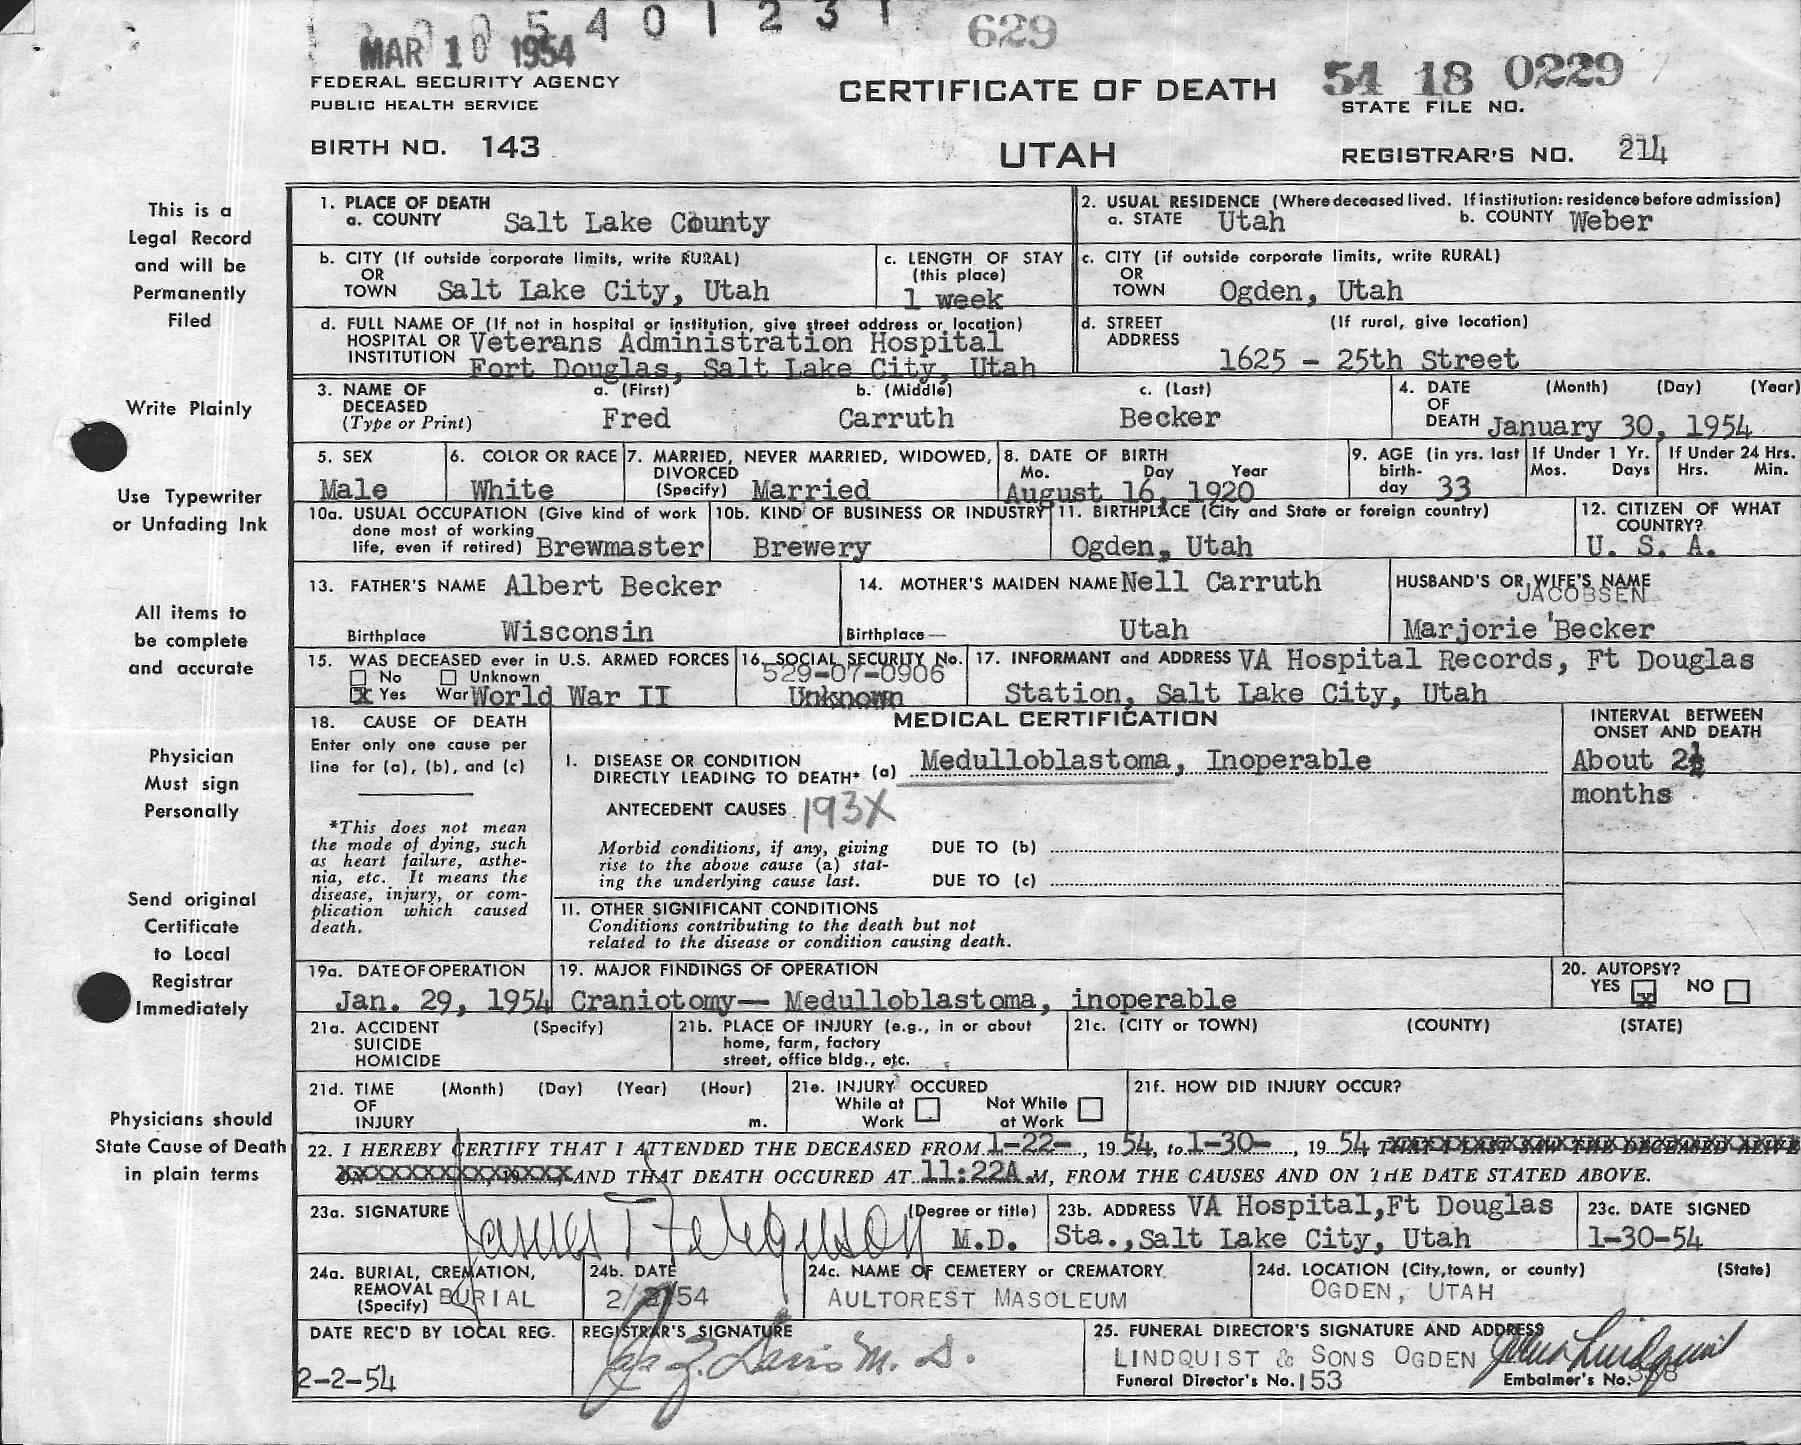 5 4 0 1 2 3 1
MAR 10 1954
629
FEDERAL SECURITY AGENCY
PUBLIC HEALTH SERVICE
BIRTH NO. 143
CERTIFICATE OF DEATH
UTAH
54 18 0229
STATE FILE NO.
REGISTRAR'S NO. 214
This is a
Legal Record
and will be
Permanently
Filed
Write Plainly
Use Typewriter
or Unfading Ink
All items to
be complete
and accurate
Physician
Must sign
Personally
Send original
Certificate
to Local
Registrar
Immediately
Physicians should
State Cause of Death
in plain terms
1. PLACE OF DEATH
a. COUNTY Salt Lake County
2. USUAL RESIDENCE (Where deceased lived. If institution: residence before admission)
a. STATE Utah b. COUNTY Weber
b. CITY (If outside corporate limits, write RURAL)
OR
TOWN Salt Lake City, Utah
c. LENGTH OF STAY
(this place)
1 week
c. CITY (if outside corporate limits, write RURAL)
OR
TOWN Ogden, Utah
d. FULL NAME OF (If not in hospital or institution, give street address or location)
HOSPITAL OR Veterans Administration Hospital
INSTITUTION Fort Douglas, Salt Lake City, Utah
d. STREET (If rural, give location)
ADDRESS
1625 - 25th Street
3. NAME OF a. (First) b. (Middle) c. (Last)
DECEASED
(Type or Print) Fred Carruth Becker
4. DATE (Month) (Day) (Year)
OF
DEATH January 30, 1954
5. SEX
Male
6. COLOR OR RACE
White
7. MARRIED, NEVER MARRIED, WIDOWED,
DIVORCED
(Specify) Married
8. DATE OF BIRTH
Mo. Day Year
August 16, 1920
9. AGE (in yrs. last
birth-
day 33
If Under 1 Yr.
Mos. Days
If Under 24 Hrs.
Hrs. Min.
10a. USUAL OCCUPATION (Give kind of work
done most of working
life, even if retired) Brewmaster
10b. KIND OF BUSINESS OR INDUSTRY
Brewery
11. BIRTHPLACE (City and State or foreign country)
Ogden, Utah
12. CITIZEN OF WHAT
COUNTRY?
U. S. A.
13. FATHER'S NAME Albert Becker
Birthplace Wisconsin
14. MOTHER'S MAIDEN NAME Nell Carruth
Birthplace— Utah
HUSBAND'S OR WIFE'S NAME
JACOBSEN
Marjorie Becker
15. WAS DECEASED ever in U.S. ARMED FORCES
No Unknown
x Yes War World War II
16. SOCIAL SECURITY No.
529-07-0906
Unknown
17. INFORMANT and ADDRESS VA Hospital Records, Ft Douglas
Station, Salt Lake City, Utah
18. CAUSE OF DEATH
Enter only one cause per
line for (a), (b), and (c)
*This does not mean
the mode of dying, such
as heart failure, asthe-
nia, etc. It means the
disease, injury, or com-
plication which caused
death.
MEDICAL CERTIFICATION
I. DISEASE OR CONDITION
DIRECTLY LEADING TO DEATH* (a) Medulloblastoma, Inoperable
ANTECEDENT CAUSES 193X
Morbid conditions, if any, giving
rise to the above cause (a) stat-
ing the underlying cause last.
DUE TO (b)
DUE TO (c)
II. OTHER SIGNIFICANT CONDITIONS
Conditions contributing to the death but not
related to the disease or condition causing death.
INTERVAL BETWEEN
ONSET AND DEATH
About 2½
months
19a. DATE OF OPERATION
Jan. 29, 1954
19. MAJOR FINDINGS OF OPERATION
Craniotomy— Medulloblastoma, inoperable
20. AUTOPSY?
YES x NO
21a. ACCIDENT (Specify)
SUICIDE
HOMICIDE
21b. PLACE OF INJURY (e.g., in or about
home, farm, factory
street, office bldg., etc.
21c. (CITY or TOWN) (COUNTY) (STATE)
21d. TIME (Month) (Day) (Year) (Hour)
OF
INJURY m.
21e. INJURY OCCURED
While at Not While
Work at Work
21f. HOW DID INJURY OCCUR?
22. I HEREBY CERTIFY THAT I ATTENDED THE DECEASED FROM 1-22-, 1954, to 1-30-, 1954 THAT I LAST SAW THE DECEASED ALIVE
ON AND THAT DEATH OCCURED AT 11:22A.M, FROM THE CAUSES AND ON THE DATE STATED ABOVE.
23a. SIGNATURE James T Ferguson (Degree or title)
M.D.
23b. ADDRESS VA Hospital,Ft Douglas
Sta.,Salt Lake City, Utah
23c. DATE SIGNED
1-30-54
24a. BURIAL, CREMATION,
REMOVAL
(Specify) BURIAL
24b. DATE
2/2/54
24c. NAME OF CEMETERY or CREMATORY
AULTOREST MASOLEUM
24d. LOCATION (City,town, or county) (State)
OGDEN, UTAH
DATE REC'D BY LOCAL REG.
2-2-54
REGISTRAR'S SIGNATURE
Davis M. D.
25. FUNERAL DIRECTOR'S SIGNATURE AND ADDRESS
LINDQUIST & SONS OGDEN John Lindquist
Funeral Director's No. 153 Embalmer's No.